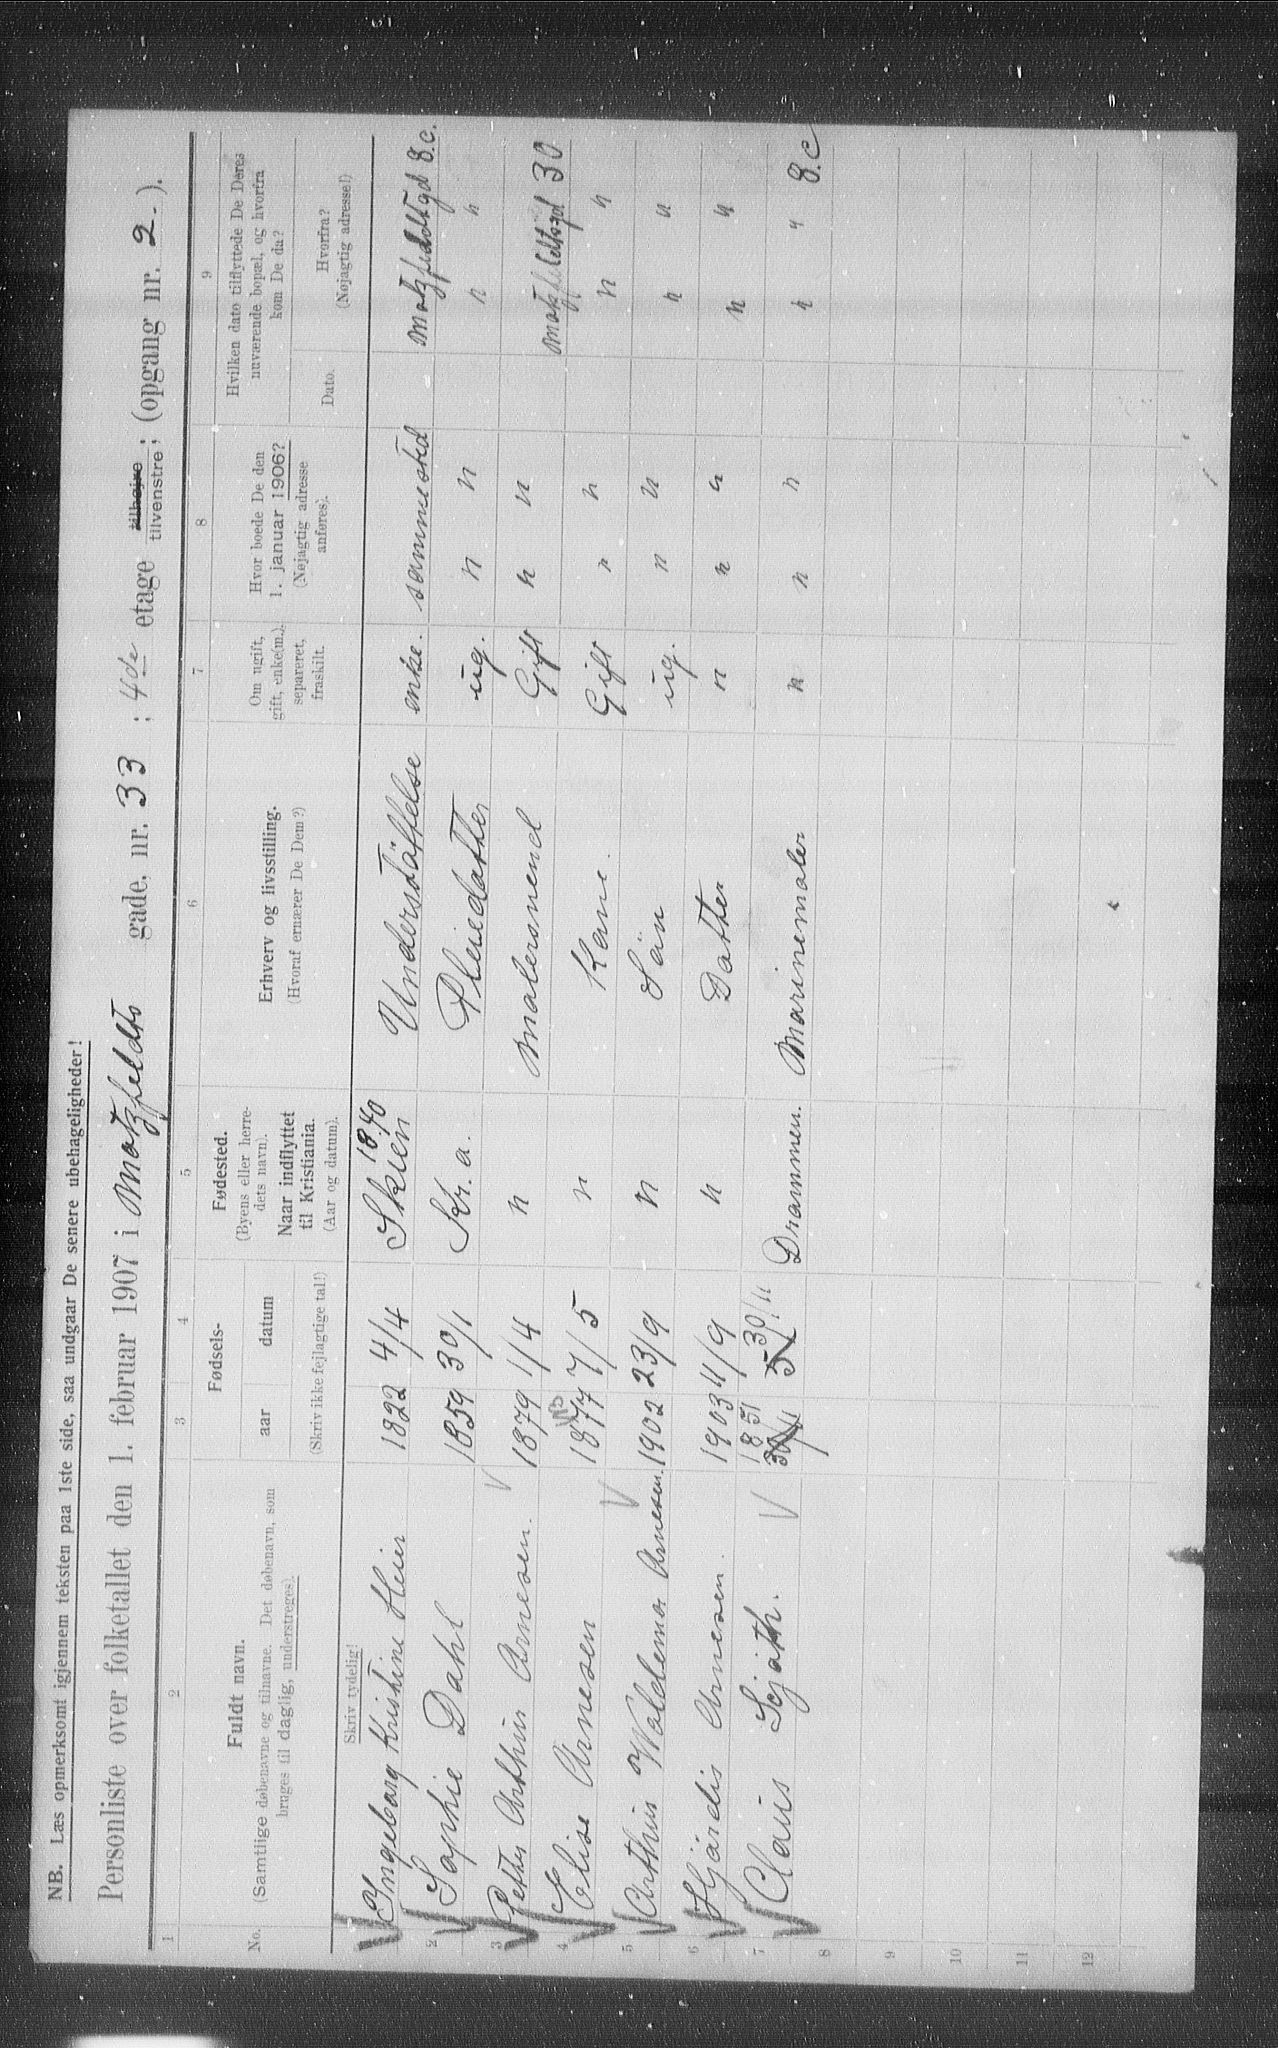 NB. Læs opmerksomt igjennem teksten paa 1ste side, saa undgaar De senere ubehageligheder!
Personliste over folketallet den 1. februar 1907 i Motzfeldts gade, nr. 33 ; 4de etage tilhøjre tilvenstre; (opgang nr. 2.).
1 2 3 4 5 6 7 8 9
No.
Fuldt navn.
(Samtlige døbenavne og tilnavne. Det døbenavn, som
bruges til daglig, understreges).
Skriv tydelig!
Fødsels-
aar datum
(Skriv ikke fejlagtige tal!)
Fødested.
(Byens eller herre-
dets navn).
Naar indflyttet
til Kristiania.
(Aar og datum).
Erhverv og livsstilling.
(Hvoraf ernærer De Dem?)
Om ugift,
gift, enke(m.),
separeret,
fraskilt.
Hvor boede De den
1. januar 1906?
(Nøjagtig adresse
anføres).
Hvilken dato tilflyttede De Deres
nuværende bopæl, og hvorfra
kom De da?
Dato.
Hvorfra?
(Nøjagtig adresse!)
Ingeborg Kristine Heier 1822 4/4 Skien 1840 Understøttelse enke. sammested Motzfeldtsgd 8.c.
2 Sophie Dahl 1859 30/1 Kr.a. Pleiedatter ug. " " " "
3 Petter Arthur Arnesen. 1879 1/4 " Malersvend Gift " " Motzfeldtsgd 30
4 Elise Arnesen 1877 7/5 " Kone. Gift " " " "
5 Arthur Waldemar Arnesen. 1902 23/9 " Søn ug. " " " "
6 Hjørdis Arnesen. 1903 11/9 " Datter " " " " "
7 Claus 1851 30/11 Drammen. Marinemaler " " " " " 8.c
8
9
10
11
12